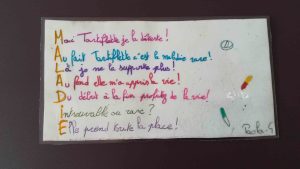 Moi Tartiflette je la déteste!
Au fait Tartiflette c'est la maladie rare!
Là je ne la supporte plus!
Au fond elle m'a appris la vie!
Du début à la fin profitez de la vie!
Introuvable ou rare?
Elle prend toute la place!
Paola.G